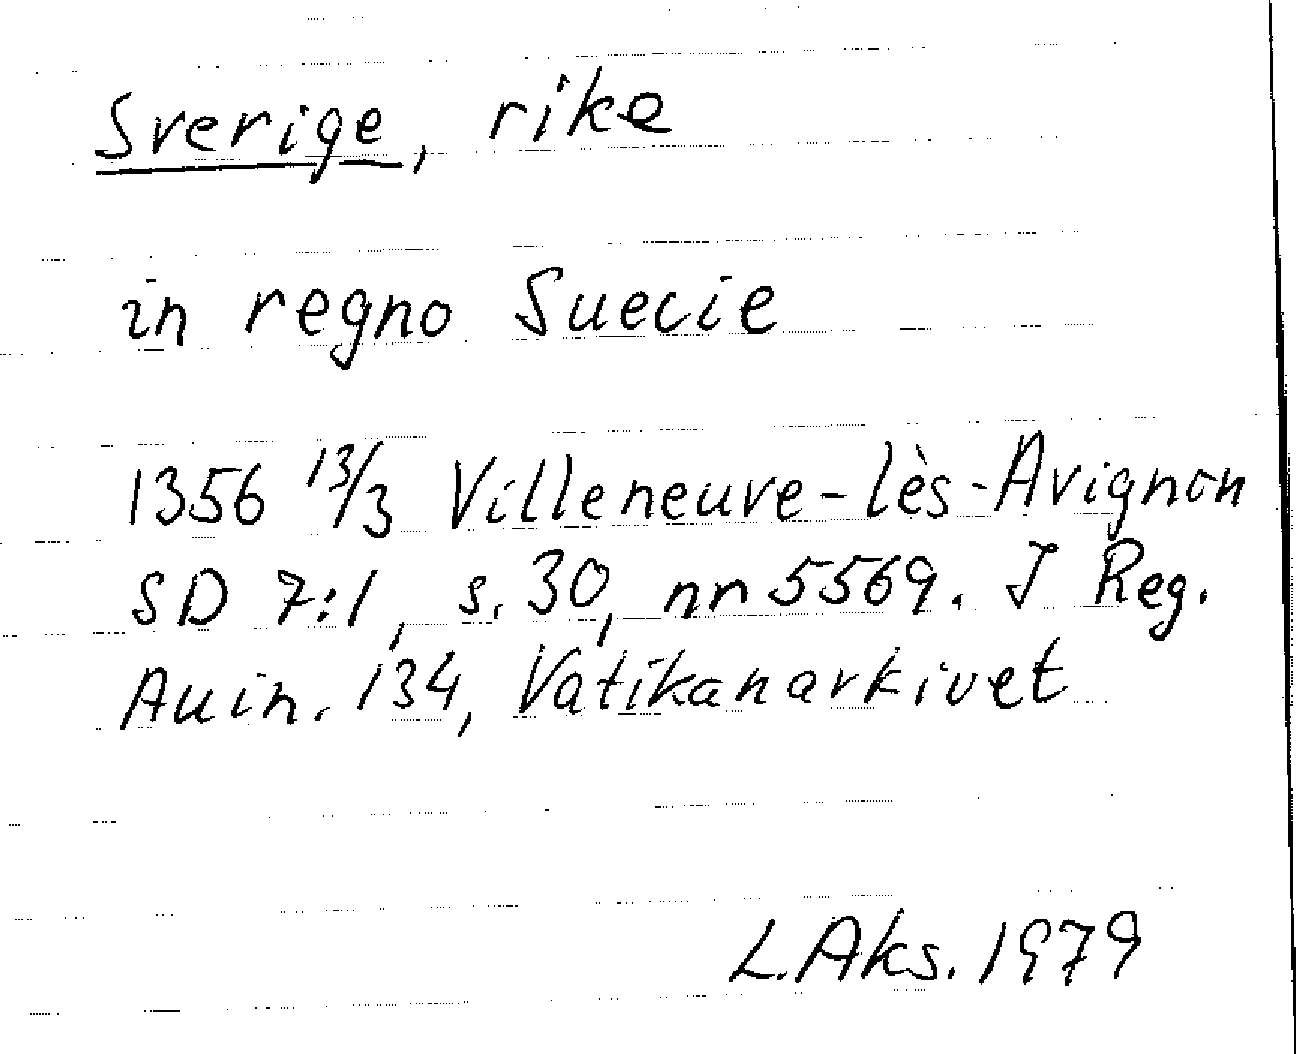 Sverige, rike
in regno Suecie
1356 13/3 Villeneuve-lès-Avignon
SD 7:1, s. 30, nr 5569. I Reg.
Auin. 134, Vatikanarkivet
L. Aks. 1979